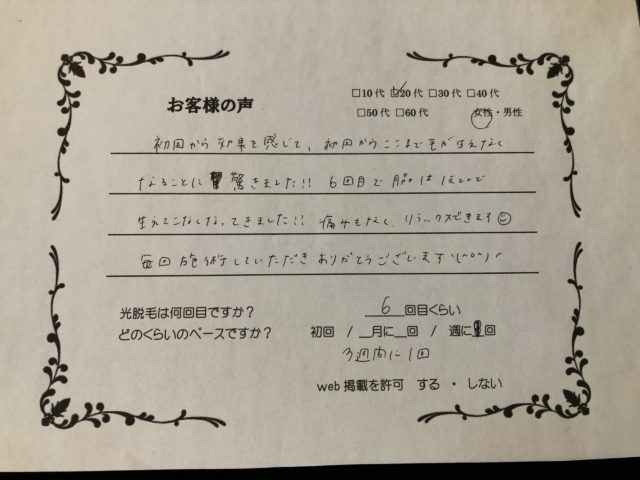 お客様の声
□10代 ☑20代 □30代 □40代
□50代 □60代 女性・男性
初回から効果を感じて、初回からここまで毛が生えなく
なることに驚きました!! 6回目で脇はほとんど
生えてこなくなってきました!! 痛みもなく、リラックスできます☺
毎回施術していただきありがとうございます\(^o^)/
光脱毛は何回目ですか?
6回目くらい
どのくらいのペースですか?
初回 / __月に__回 / 週に回
3週間に1回
web掲載を許可 する ・ しない